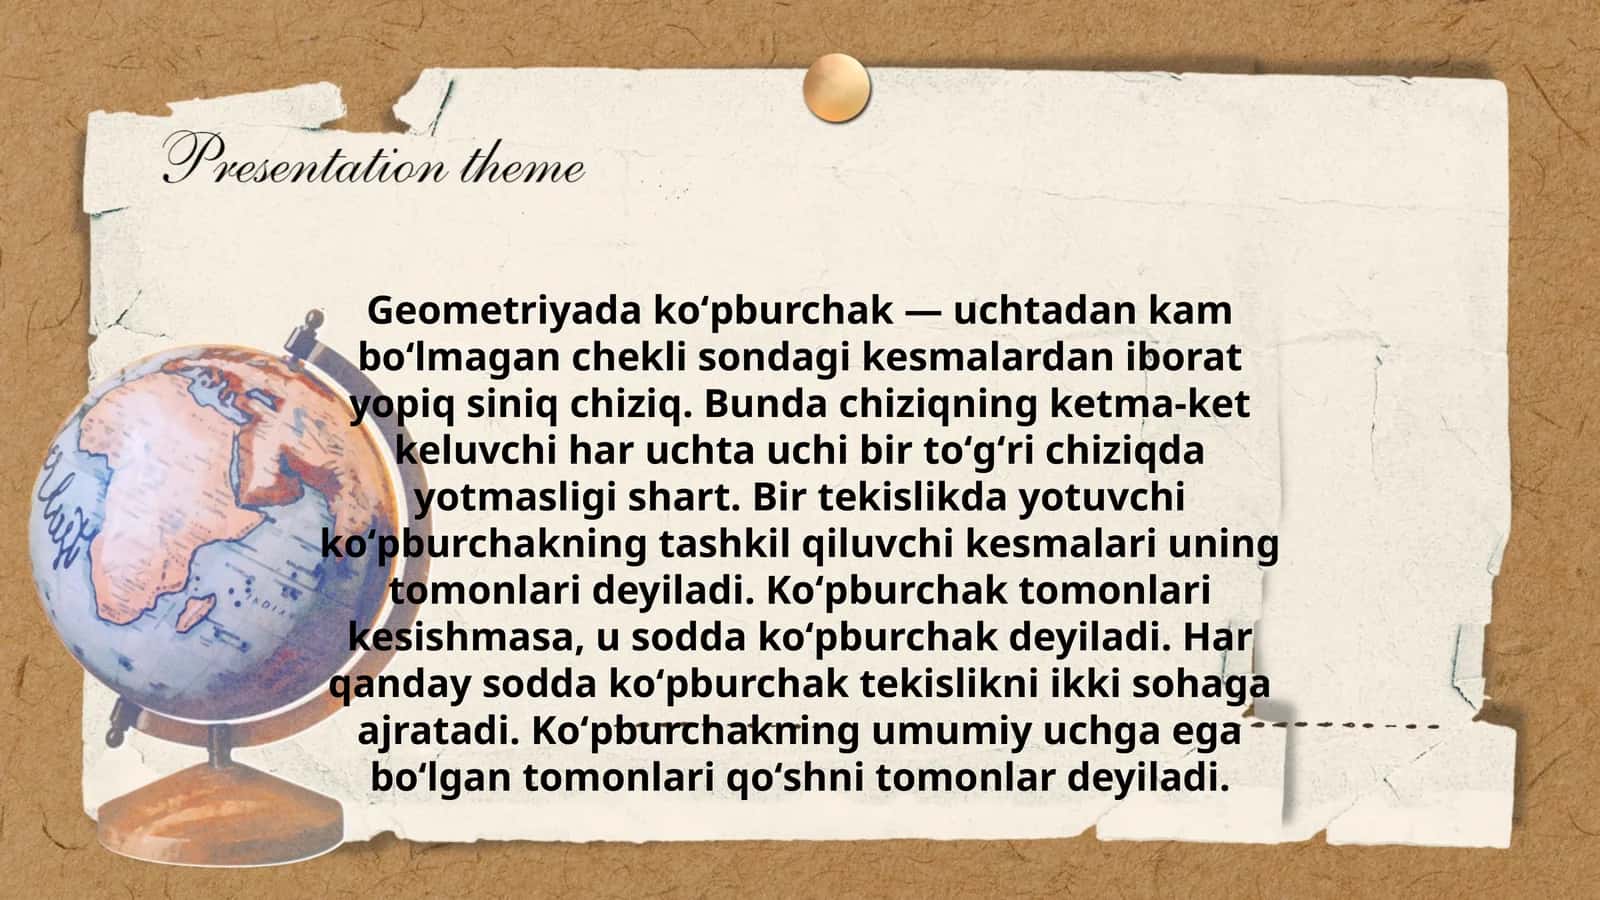 Presentation theme
Geometriyada koʻpburchak — uchtadan kam
boʻlmagan chekli sondagi kesmalardan iborat
yopiq siniq chiziq. Bunda chiziqning ketma-ket
keluvchi har uchta uchi bir toʻgʻri chiziqda
yotmasligi shart. Bir tekislikda yotuvchi
koʻpburchakning tashkil qiluvchi kesmalari uning
tomonlari deyiladi. Koʻpburchak tomonlari
kesishmasa, u sodda koʻpburchak deyiladi. Har
qanday sodda koʻpburchak tekislikni ikki sohaga
ajratadi. Koʻpburchakning umumiy uchga ega
boʻlgan tomonlari qoʻshni tomonlar deyiladi.